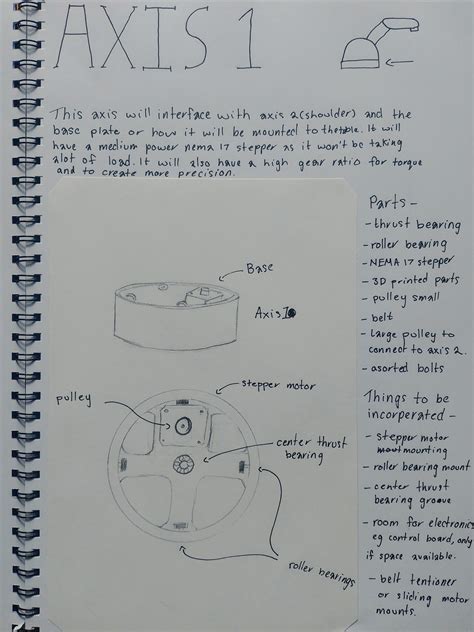 AXIS 1
This axis will interface with axis 2(shoulder) and the
base plate or how it will be mounted to the table. It will
have a medium power nema 17 stepper as it won't be taking
alot of load. It will also have a high gear ratio for torque
and to create more precision.
Base
Axis 1
stepper motor
pulley
center thrust
bearing
roller bearings
Parts -
- thrust bearing
- roller bearing
- NEMA 17 stepper
- 3D printed parts
- pulley small
- belt
- Large pulley to
connect to axis 2.
- asorted bolts
Things to be
incorperated -
- stepper motor
mounting
- roller bearing mount
- center thrust
bearing groove
- room for electronics
eg control board, only
if space available.
- belt tentioner
or sliding motor
mounts.